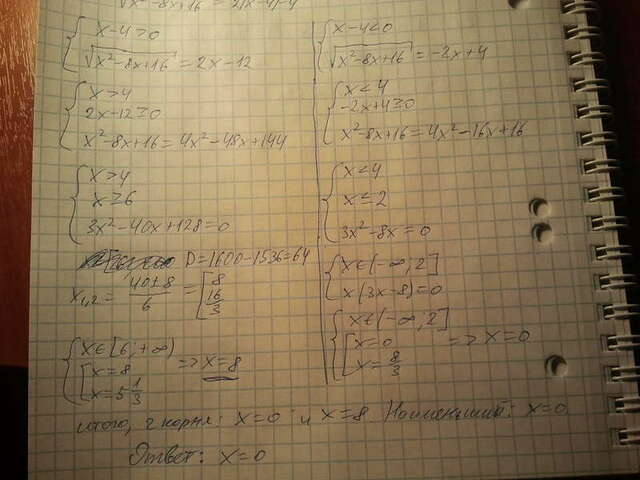 √x²-8x+16 = 2|x-4|-4
{ x-4>0
√x²-8x+16 = 2x-12
{ x>4
2x-12≥0
x²-8x+16=4x²-48x+144
{ x>4
x≥6
3x²-40x+128=0
D=1600-1536=64
x₁,₂ = 40±8/6 = [ 8 16/3
{ x∈[6;+∞)
[ x=8
x=5 1/3
=> x=8
{ x-4<0
√x²-8x+16 = -2x+4
{ x<4
-2x+4≥0
x²-8x+16=4x²-16x+16
{ x<4
x≤2
3x²-8x=0
{ x∈(-∞;2]
x(3x-8)=0
{ x∈(-∞;2]
[ x=0
x=8/3
=> x=0
итого, 2 корня: x=0 и x=8 Наименьший: x=0
Ответ: x=0